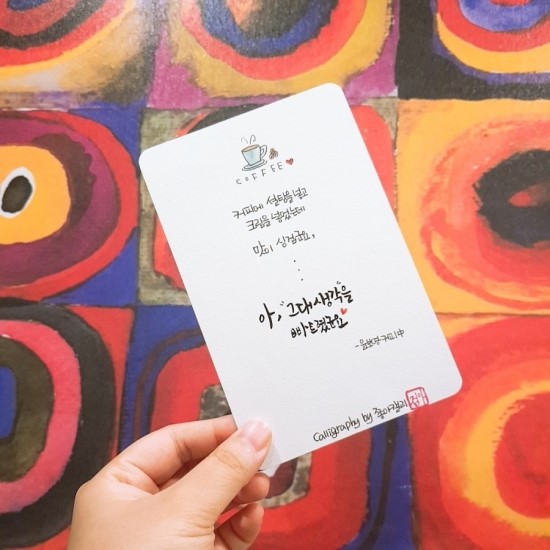 COFFEE
커피에 설탕을 넣고
크림을 넣었는데
맛이 싱겁군요,
아, "그대 생각"을
빠트렸군요
- 윤보영 커피 中
Calligraphy by 좋아캘리